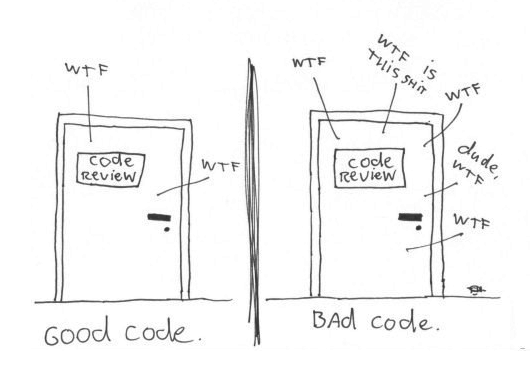 WTF
CODE
REVIEW
WTF
GOOD CODE.
WTF
WTF IS
THIS SHIT
WTF
CODE
REVIEW
dude,
WTF
WTF
BAD CODE.